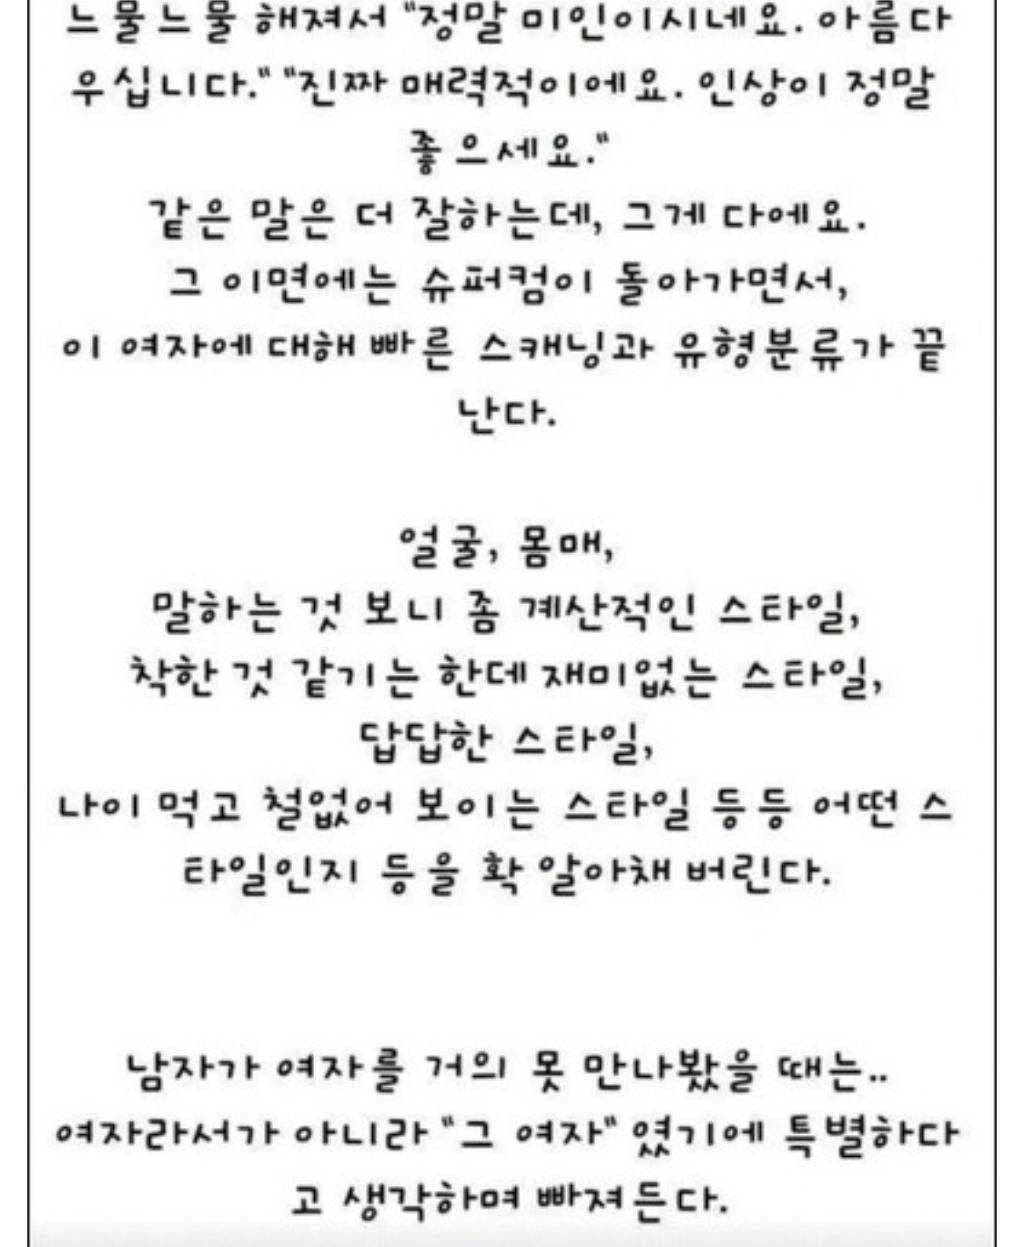 느물느물 해져서 "정말 미인이시네요. 아름다
우십니다." "진짜 매력적이에요. 인상이 정말
좋으세요."
같은 말은 더 잘하는데, 그게 다에요.
그 이면에는 슈퍼컴이 돌아가면서,
이 여자에 대해 빠른 스캐닝과 유형분류가 끝
난다.
얼굴, 몸매,
말하는 것 보니 좀 계산적인 스타일,
착한 것 같기는 한데 재미없는 스타일,
답답한 스타일,
나이 먹고 철없어 보이는 스타일 등등 어떤 스
타일인지 등을 확 알아채 버린다.
남자가 여자를 거의 못 만나봤을 때는..
여자라서가 아니라 "그 여자" 였기에 특별하다
고 생각하며 빠져든다.